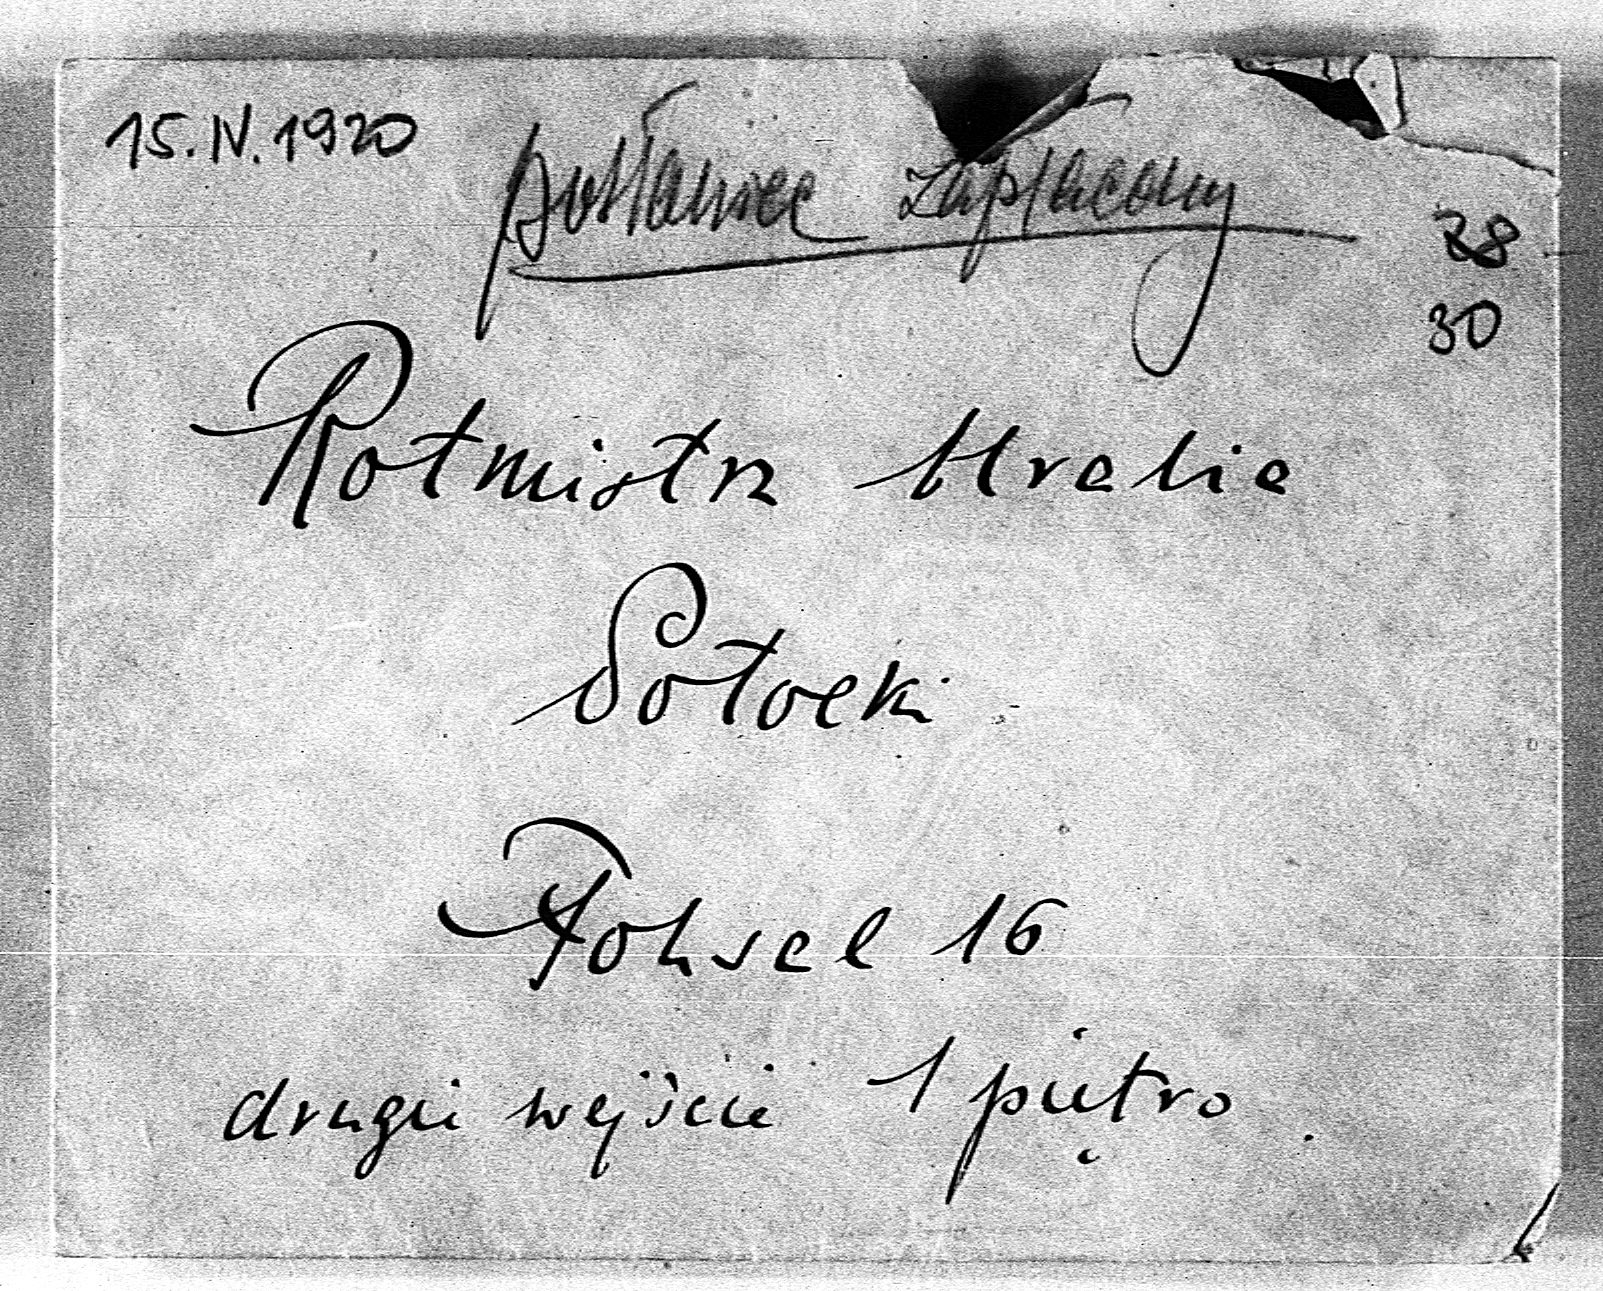 15.IV.1920
posłaniec zapłacony
28
30
Rotmistrz Hrabia
Potocki
Foksal 16
drugie wejście 1 piętro.